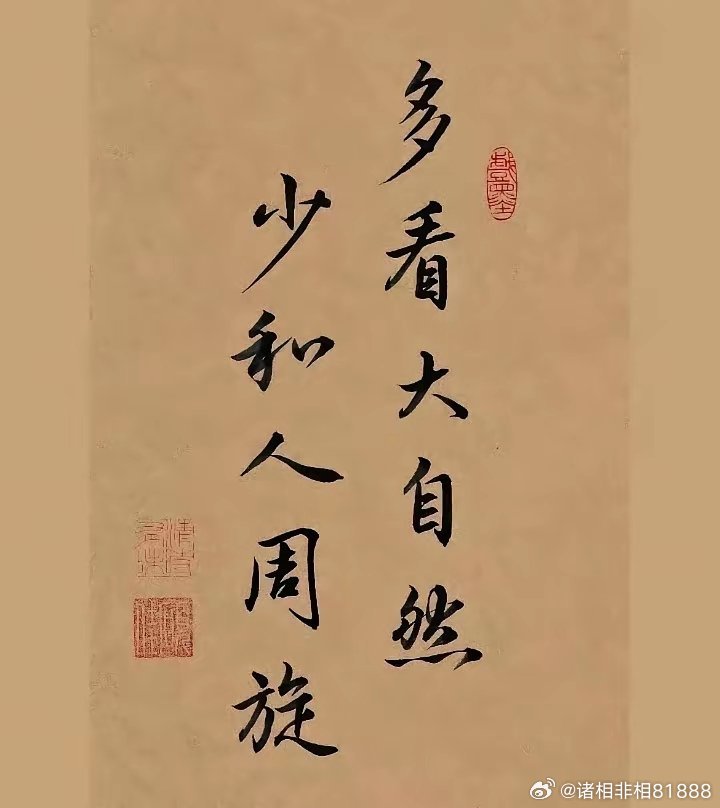 多看大自然
少和人周旋
@诸相非相81888